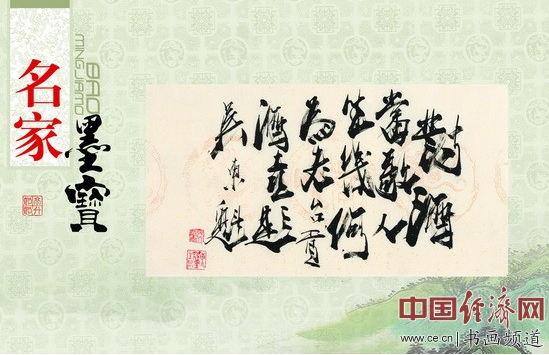 名家
墨寶
MINGJIAMO
BAO
對酒
當歌人
生幾何
為老台貢
酒題
吳東魁
中国经济网
www.ce.cn | 书画频道